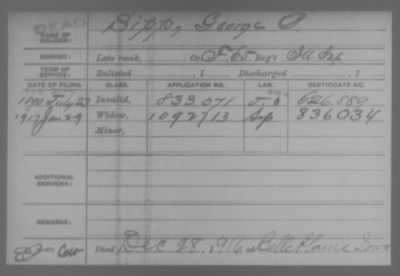 DEAD
NAME OF SOLDIER: Bipp, George O.
SERVICE: Late rank, Co F, 65 Reg't Ill Inf
TERM OF SERVICE: Enlisted , 1 Discharged , 1
DATE OF FILING. CLASS. APPLICATION NO. LAW. CERTIFICATE NO.
1890 July 23 Invalid, 833 071 626.680
1917 Jan 29 Widow, 1092713 836034
Minor,
ADDITIONAL SERVICES:
REMARKS:
Died Dec 28, 1916, at Belle Plaine Iowa